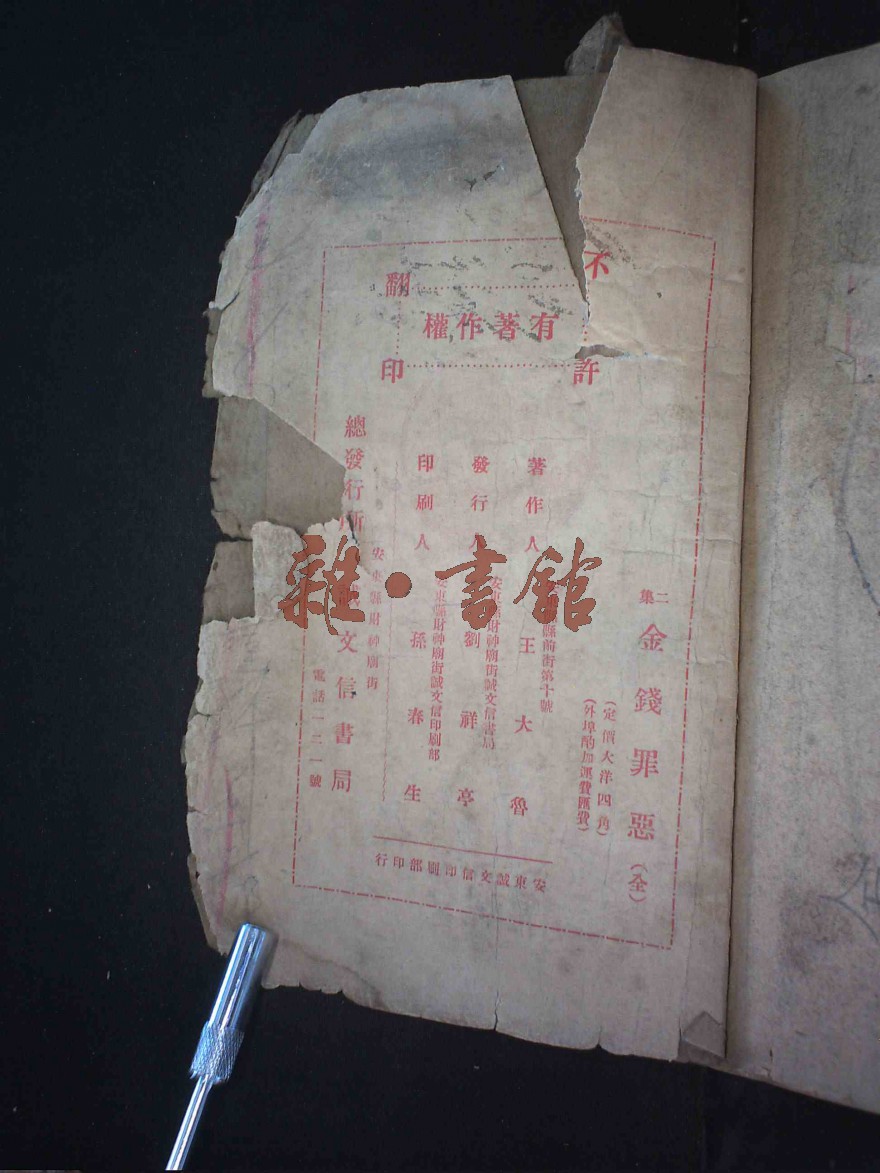 不許翻印
有著作權
二集 金錢罪惡（全）
（定價大洋四角）
（外埠酌加運費匯費）
著作人 縣前街第十號 王大魯
發行人 安東縣財神廟街誠文信書局 劉祥亭
印刷人 安東縣財神廟街誠文信印刷部 孫春生
總發行所 安東縣財神廟街 誠文信書局
電話一二一號
安東誠文信印刷部印行
雜·書館